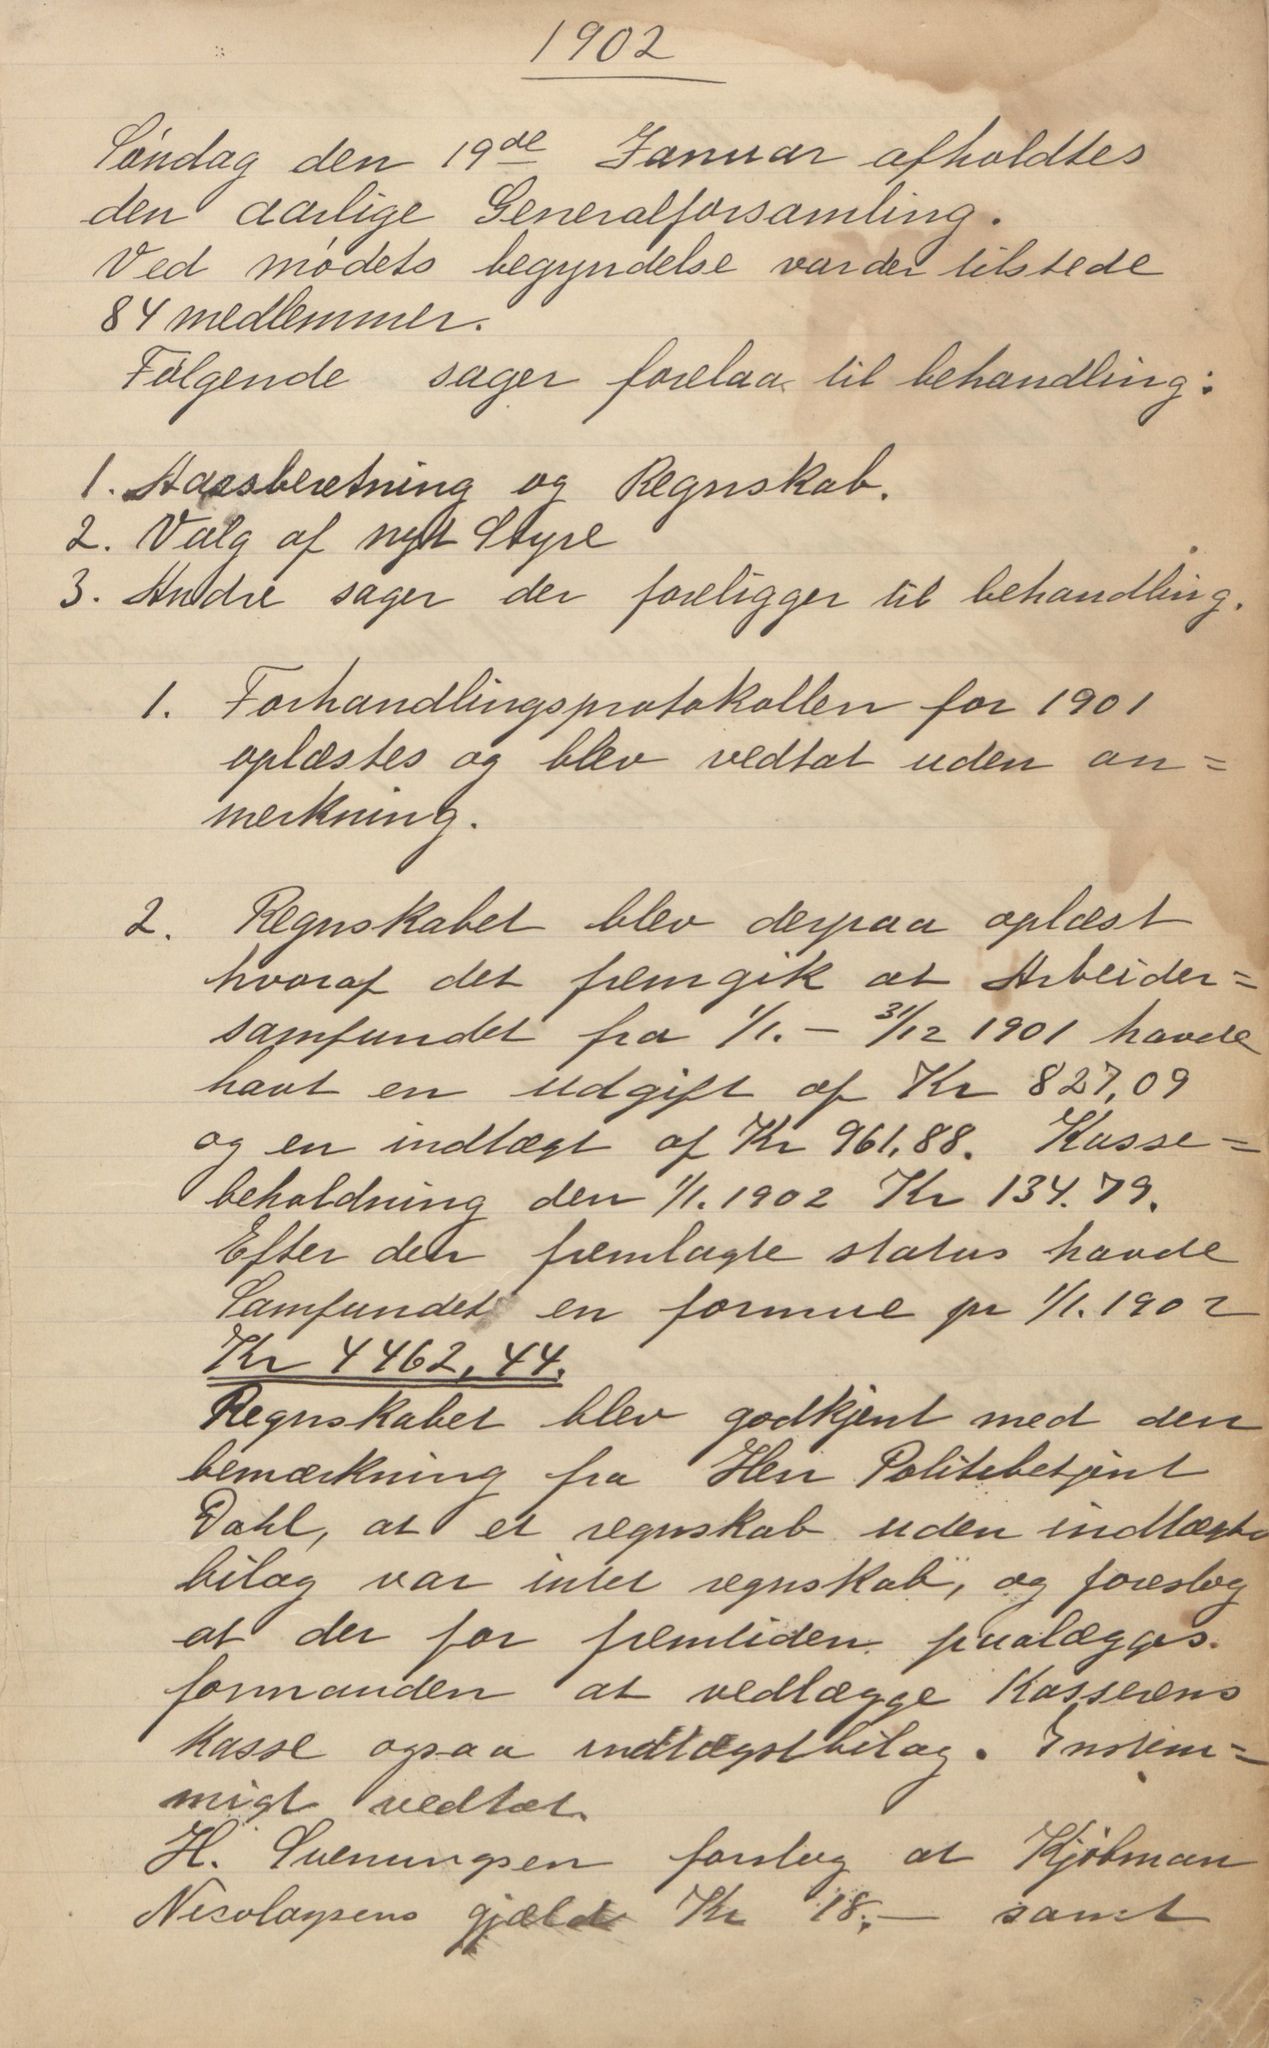 1902
Søndag den 19de Januar afholdtes
den aarlige Generalforsamling.
Ved mødets begyndelse var der tilstede
84 medlemmer.
Følgende sager forelaa til behandling:
1. Aarsberetning og Regnskab.
2. Valg af nyt Styre
3. Andre sager der foreligger til behandling.
1. Forhandlingsprotokollen for 1901
oplæstes og blev vedtat uden an=
merkning.
2. Regnskabet blev derpaa oplæst
hvoraf det fremgik at Arbeider=
samfundet fra 1/1. – 31/12 1901 havde
havt en udgift af Kr 827,09
og en indtægt af Kr 961,88. Kasse=
beholdning den 1/1. 1902 Kr 134.79.
Efter den fremlagte status havde
Samfundet en formue pr 1/1. 1902
Kr 4462,44.
Regnskabet blev godkjent med den
bemærkning fra Herr Politibetjent
Dahl, at et regnskab uden indtægts
bilag var intet regnskab, og foreslog
at der for fremtiden paalægges
formanden at vedlægge Kasserens
kasse ogsaa indtægstbilag. Enstem=
migt vedtat.
H. Svenungsen forslog at Kjøbman
Nicolaysens gjæld Kr 18,– samt